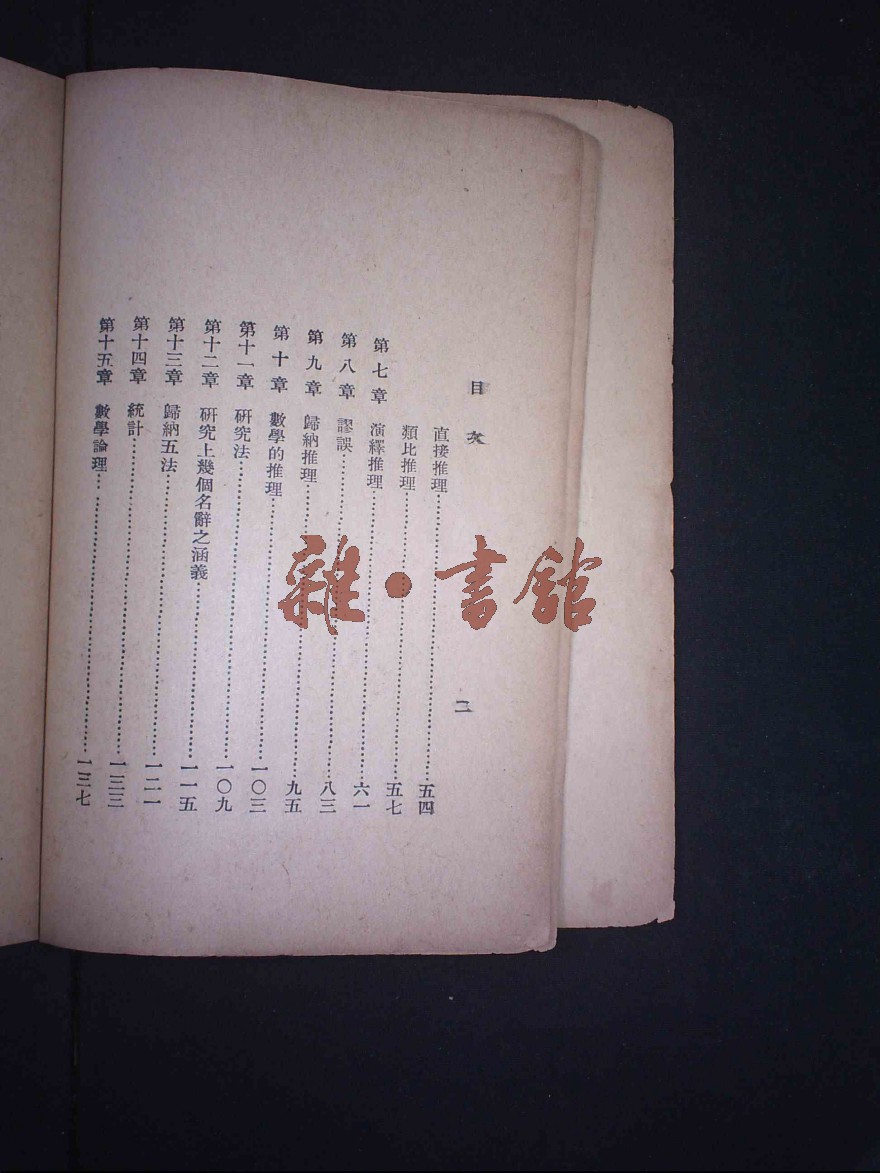 目次
二
直接推理……五四
類比推理……五七
第七章 演繹推理……六一
第八章 謬誤……八三
第九章 歸納推理……九五
第十章 數學的推理……一〇三
第十一章 研究法……一〇九
第十二章 研究上幾個名辭之涵義……一一五
第十三章 歸納五法……一二一
第十四章 統計……一三三
第十五章 數學論理……一三七
雜·書館